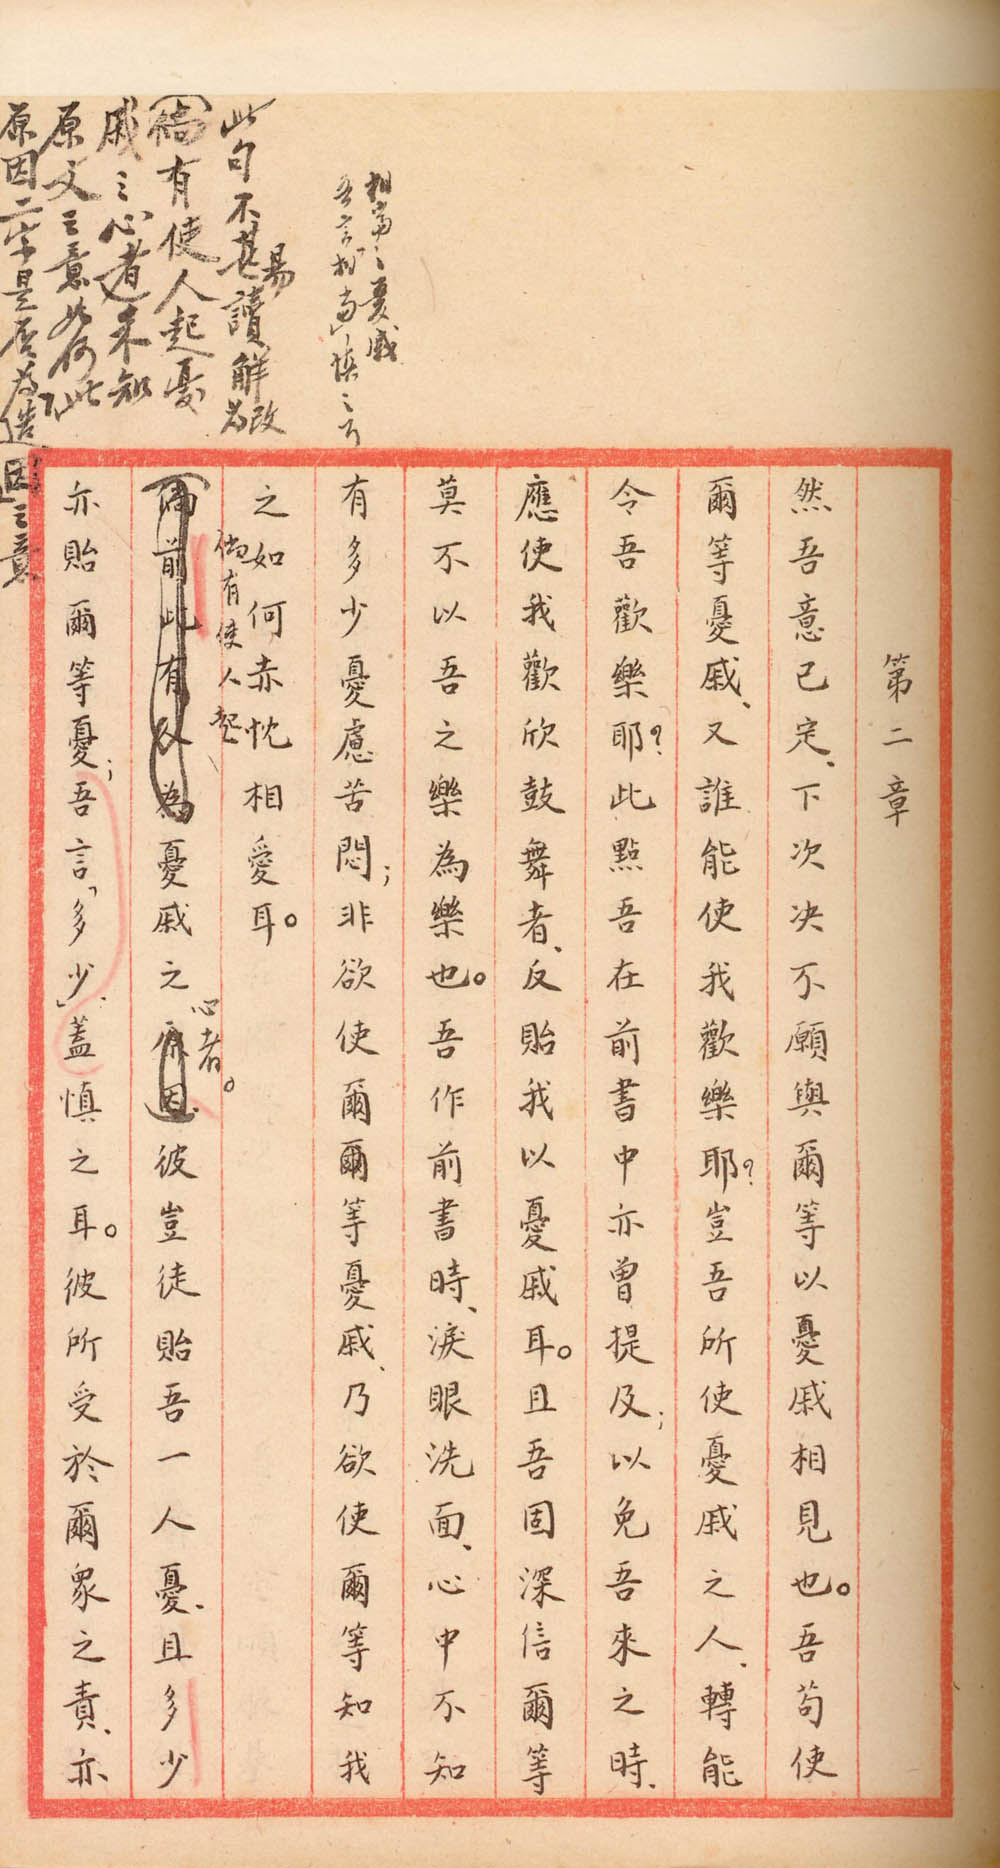 第二章
然吾意己定、下次決不願與爾等以憂戚相見也。吾苟使
爾等憂戚、又誰能使我歡樂耶？豈吾所使憂戚之人、轉能
令吾歡樂耶？此點吾在前書中亦曾提及；以免吾來之時、
應使我歡欣鼓舞者、反貽我以憂戚耳。且吾固深信爾等
莫不以吾之樂為樂也。吾作前書時、淚眼洗面、心中不知
有多少憂慮苦悶；非欲使爾爾等憂戚、乃欲使爾等知我
之如何赤忱相愛耳。
倘有使人起
倘前此有及為憂戚之原因彼豈徒貽吾一人憂、且多少
心者。
亦貽爾等憂；吾言「多少」、蓋慎之耳。彼所受於爾眾之責、亦
相當之憂戚
吾言「相當」慎之耳
此句不甚易讀解改為
倘有使人起憂
戚之心者未知
原文之意如何此
原因二字是否為造因之意